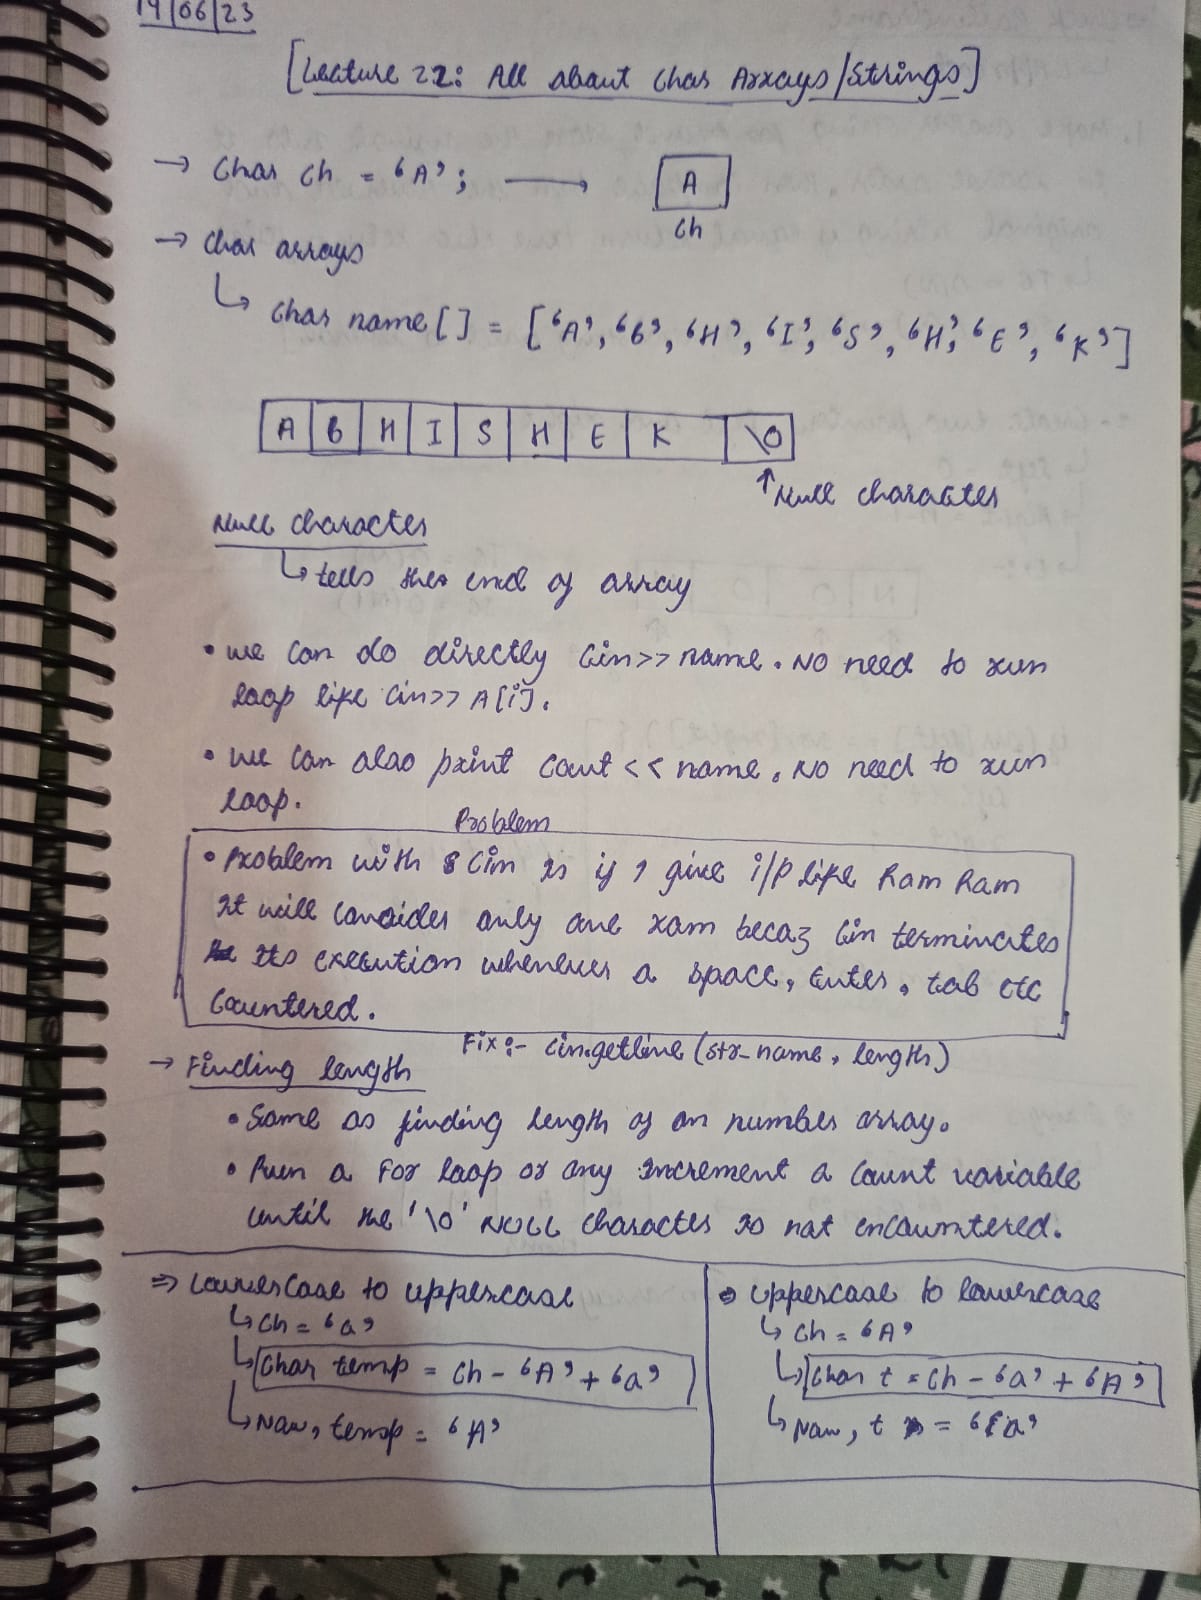 19/06/23
[Lecture 22: All about Char Arrays/Strings]
→ Char ch = 'A'; → A
ch
→ Char arrays
↳ Char name[] = ['A', 'B', 'H', 'I', 'S', 'H', 'E', 'K']
A B H I S H E K \0
↑ Null character
Null character
↳ tells the end of array
• we can do directly Cin>>name. No need to run
loop like Cin>> A[i].
• we can also print Cout<<name. No need to run
loop.
Problem
• Problem with Cin is if I give i/p like Ram Ram
It will consider only one ram becaz Cin terminates
its execution whenever a space, Enter, tab etc
Countered.
Fix:- Cin.getline(str_name, length)
→ Finding length
• Same as finding length of an number array.
• Run a For loop or any increment a Count variable
until the '\0' NULL character is not encountered.
⇒ Lowercase to uppercase
↳ Ch = 'a'
↳ Char temp = Ch - 'A' + 'a'
↳ Now, temp = 'A'
⇒ Uppercase to lowercase
↳ Ch = 'A'
↳ Char t = Ch - 'a' + 'A'
↳ Now, t = 'a'